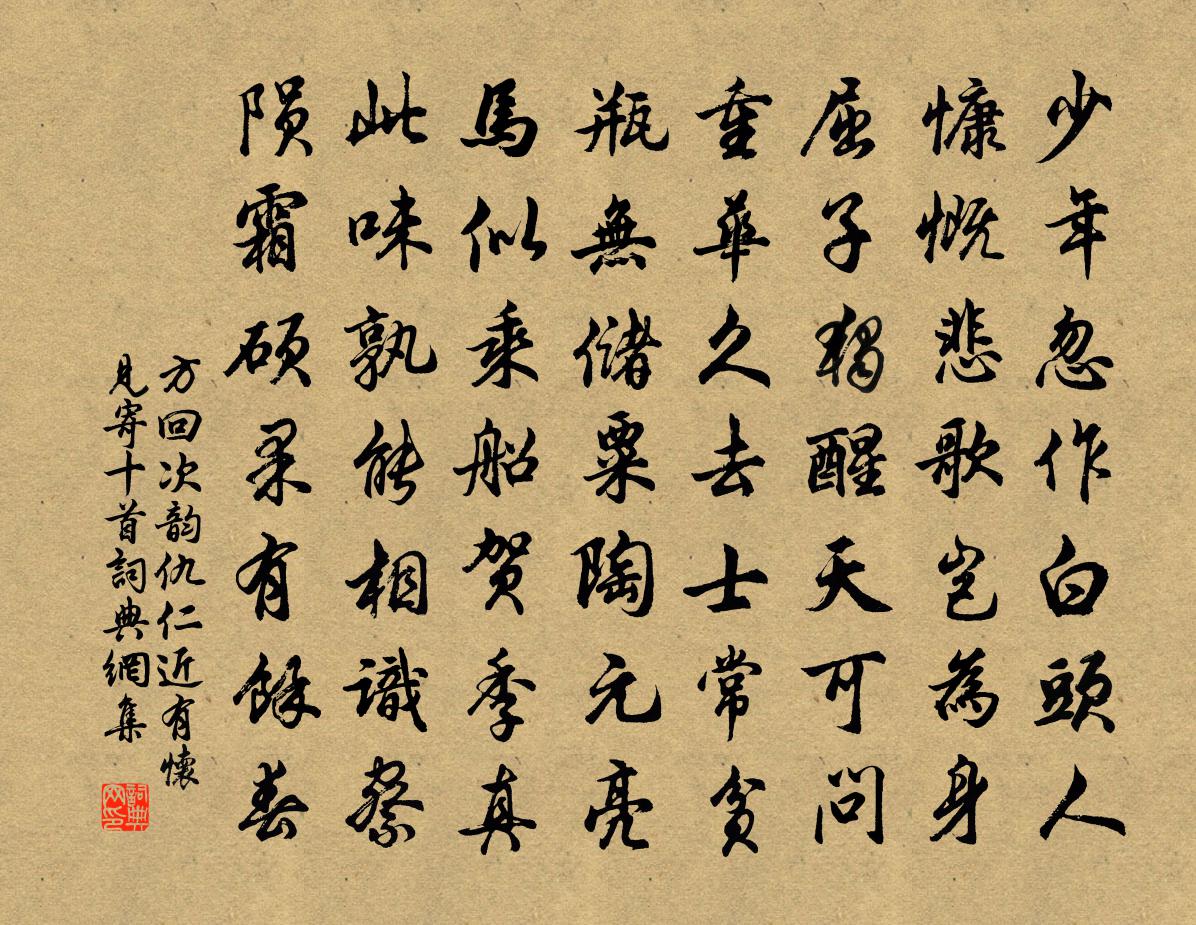 少年忽作白頭人
慷慨悲歌岂為身
屈子獨醒天可問
重華久去士常貧
瓶無儲粟陶元亮
馬似乘船贺季真
此味孰能相識察
陨霜硕果有餘春
方回次韵仇仁近有懷
見寄十首詞典網集
詞典
网印